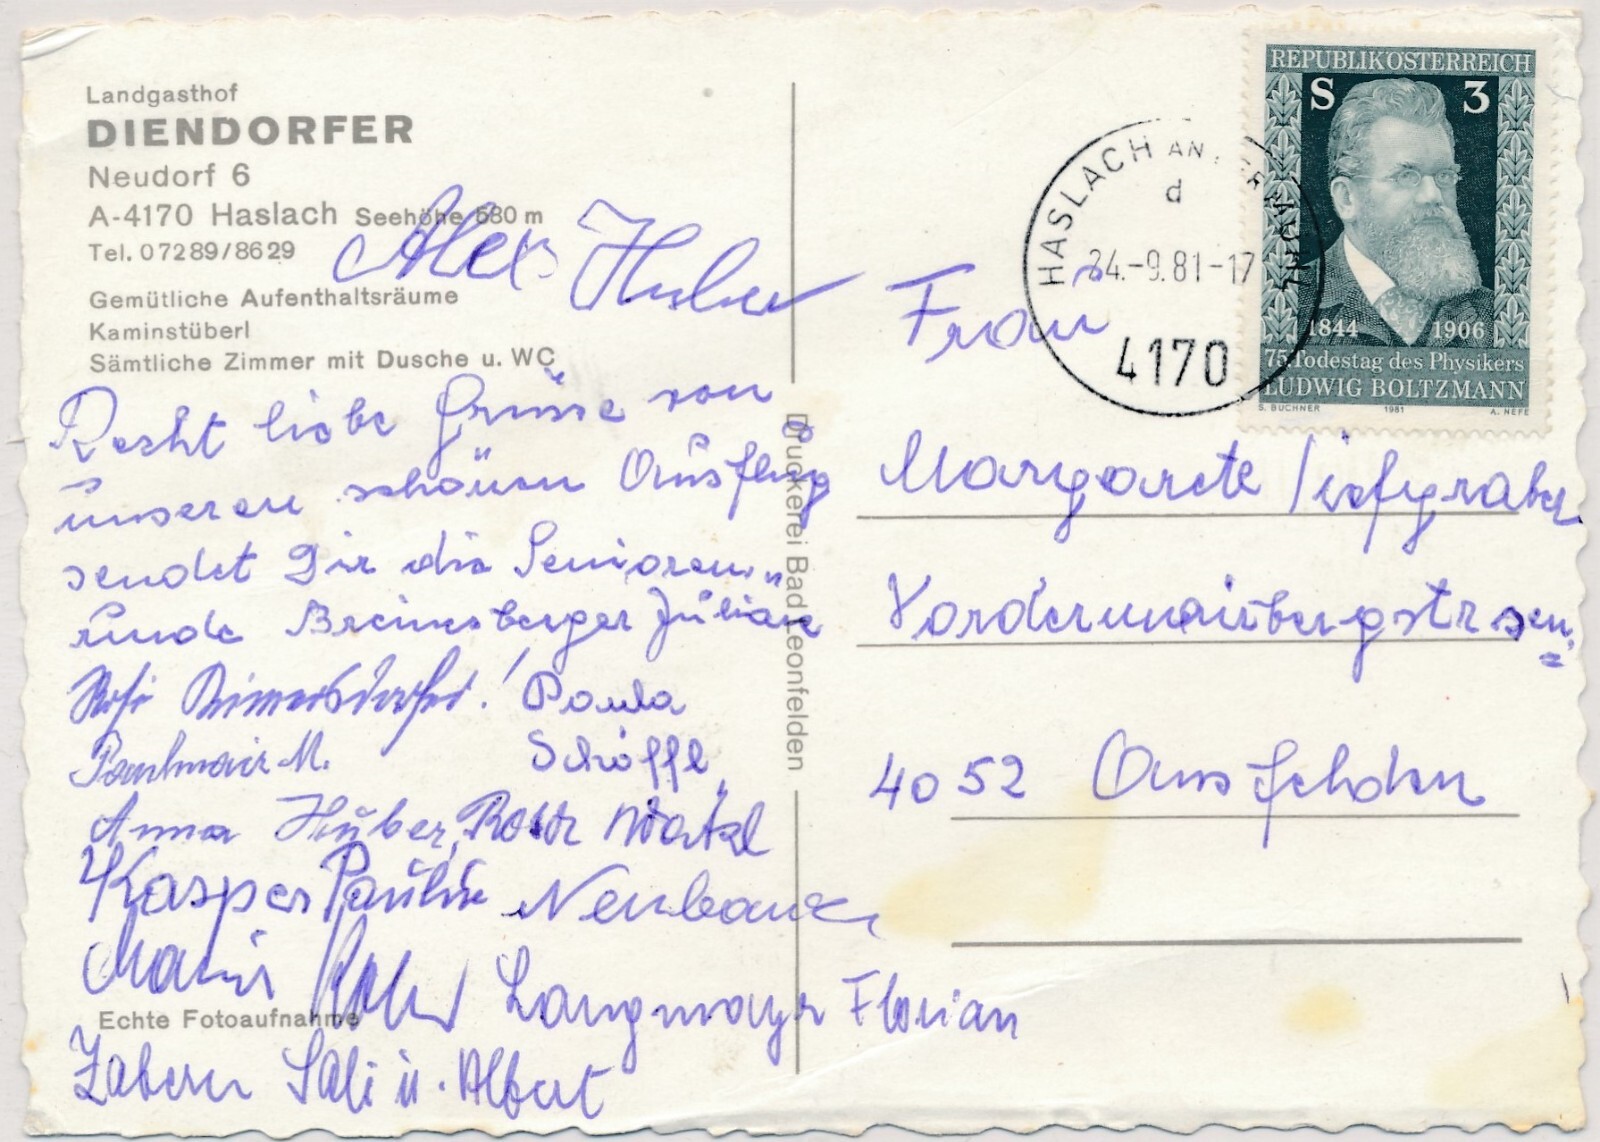 Landgasthof
DIENDORFER
Neudorf 6
A-4170 Haslach Seehöhe 580 m
Tel. 07289/8629
Gemütliche Aufenthaltsräume
Kaminstüberl
Sämtliche Zimmer mit Dusche u. WC
Alex Huber
Recht liebe Grüsse von
unseren schönen Ausflug
sendet Dir die Senioren„
runde Breinesberger Juliane
Resi Dimersdorfer! Paula
Paulmair M. Schöffl,
Anna Huber, Watzl
Kasper Pauline Neubauer,
Maria Langmayr Florian
Echte Fotoaufnahme
Zabern Sali u. Albert
Druckerei Bad Leonfelden
REPUBLIK ÖSTERREICH
S 3
1844 1906
75. Todestag des Physikers
LUDWIG BOLTZMANN
S. BUCHNER 1981 A. NEFE
HASLACH AN DER MÜHL
d
24.-9.81-17
4170
Frau
Margarete Tiefgraber
Vordermairbergstr sen.
4052 Ansfelden